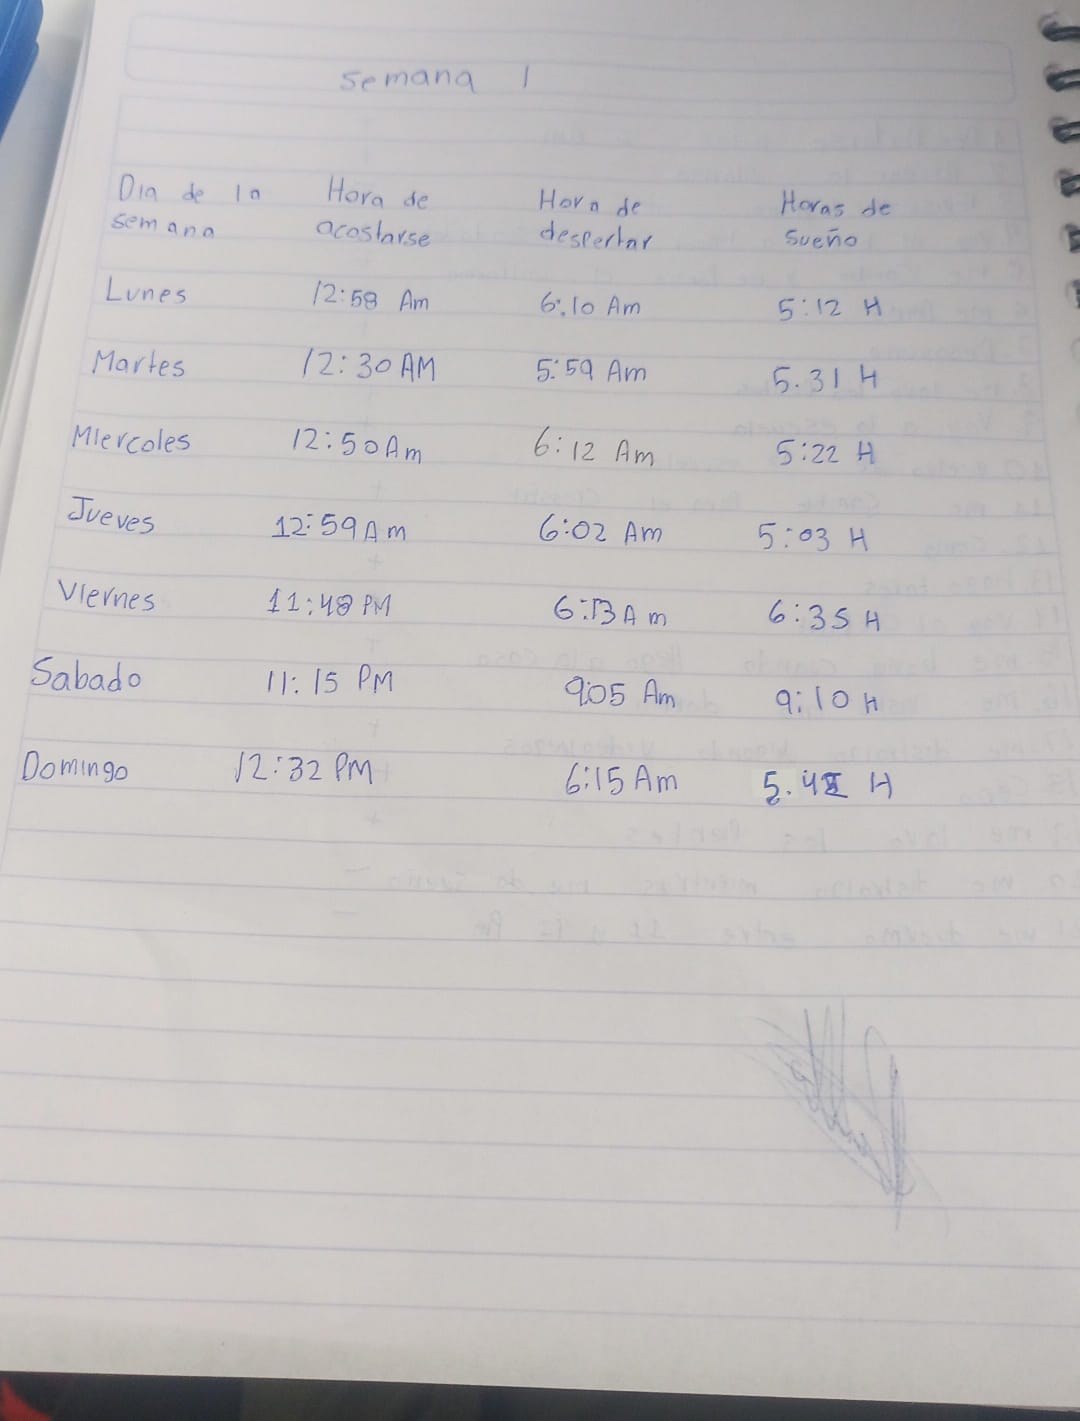 semana 1
Dia de la Hora de Hora de Horas de
semana acostarse despertar sueño
Lunes 12:58 Am 6:10 Am 5:12 H
Martes 12:30 AM 5:59 Am 5.31 H
Miercoles 12:50 Am 6:12 Am 5:22 H
Jueves 12:59 Am 6:02 Am 5:03 H
Viernes 11:48 PM 6:13 Am 6:35 H
Sabado 11:15 PM 9:05 Am 9:10 H
Domingo 12:32 PM 6:15 Am H